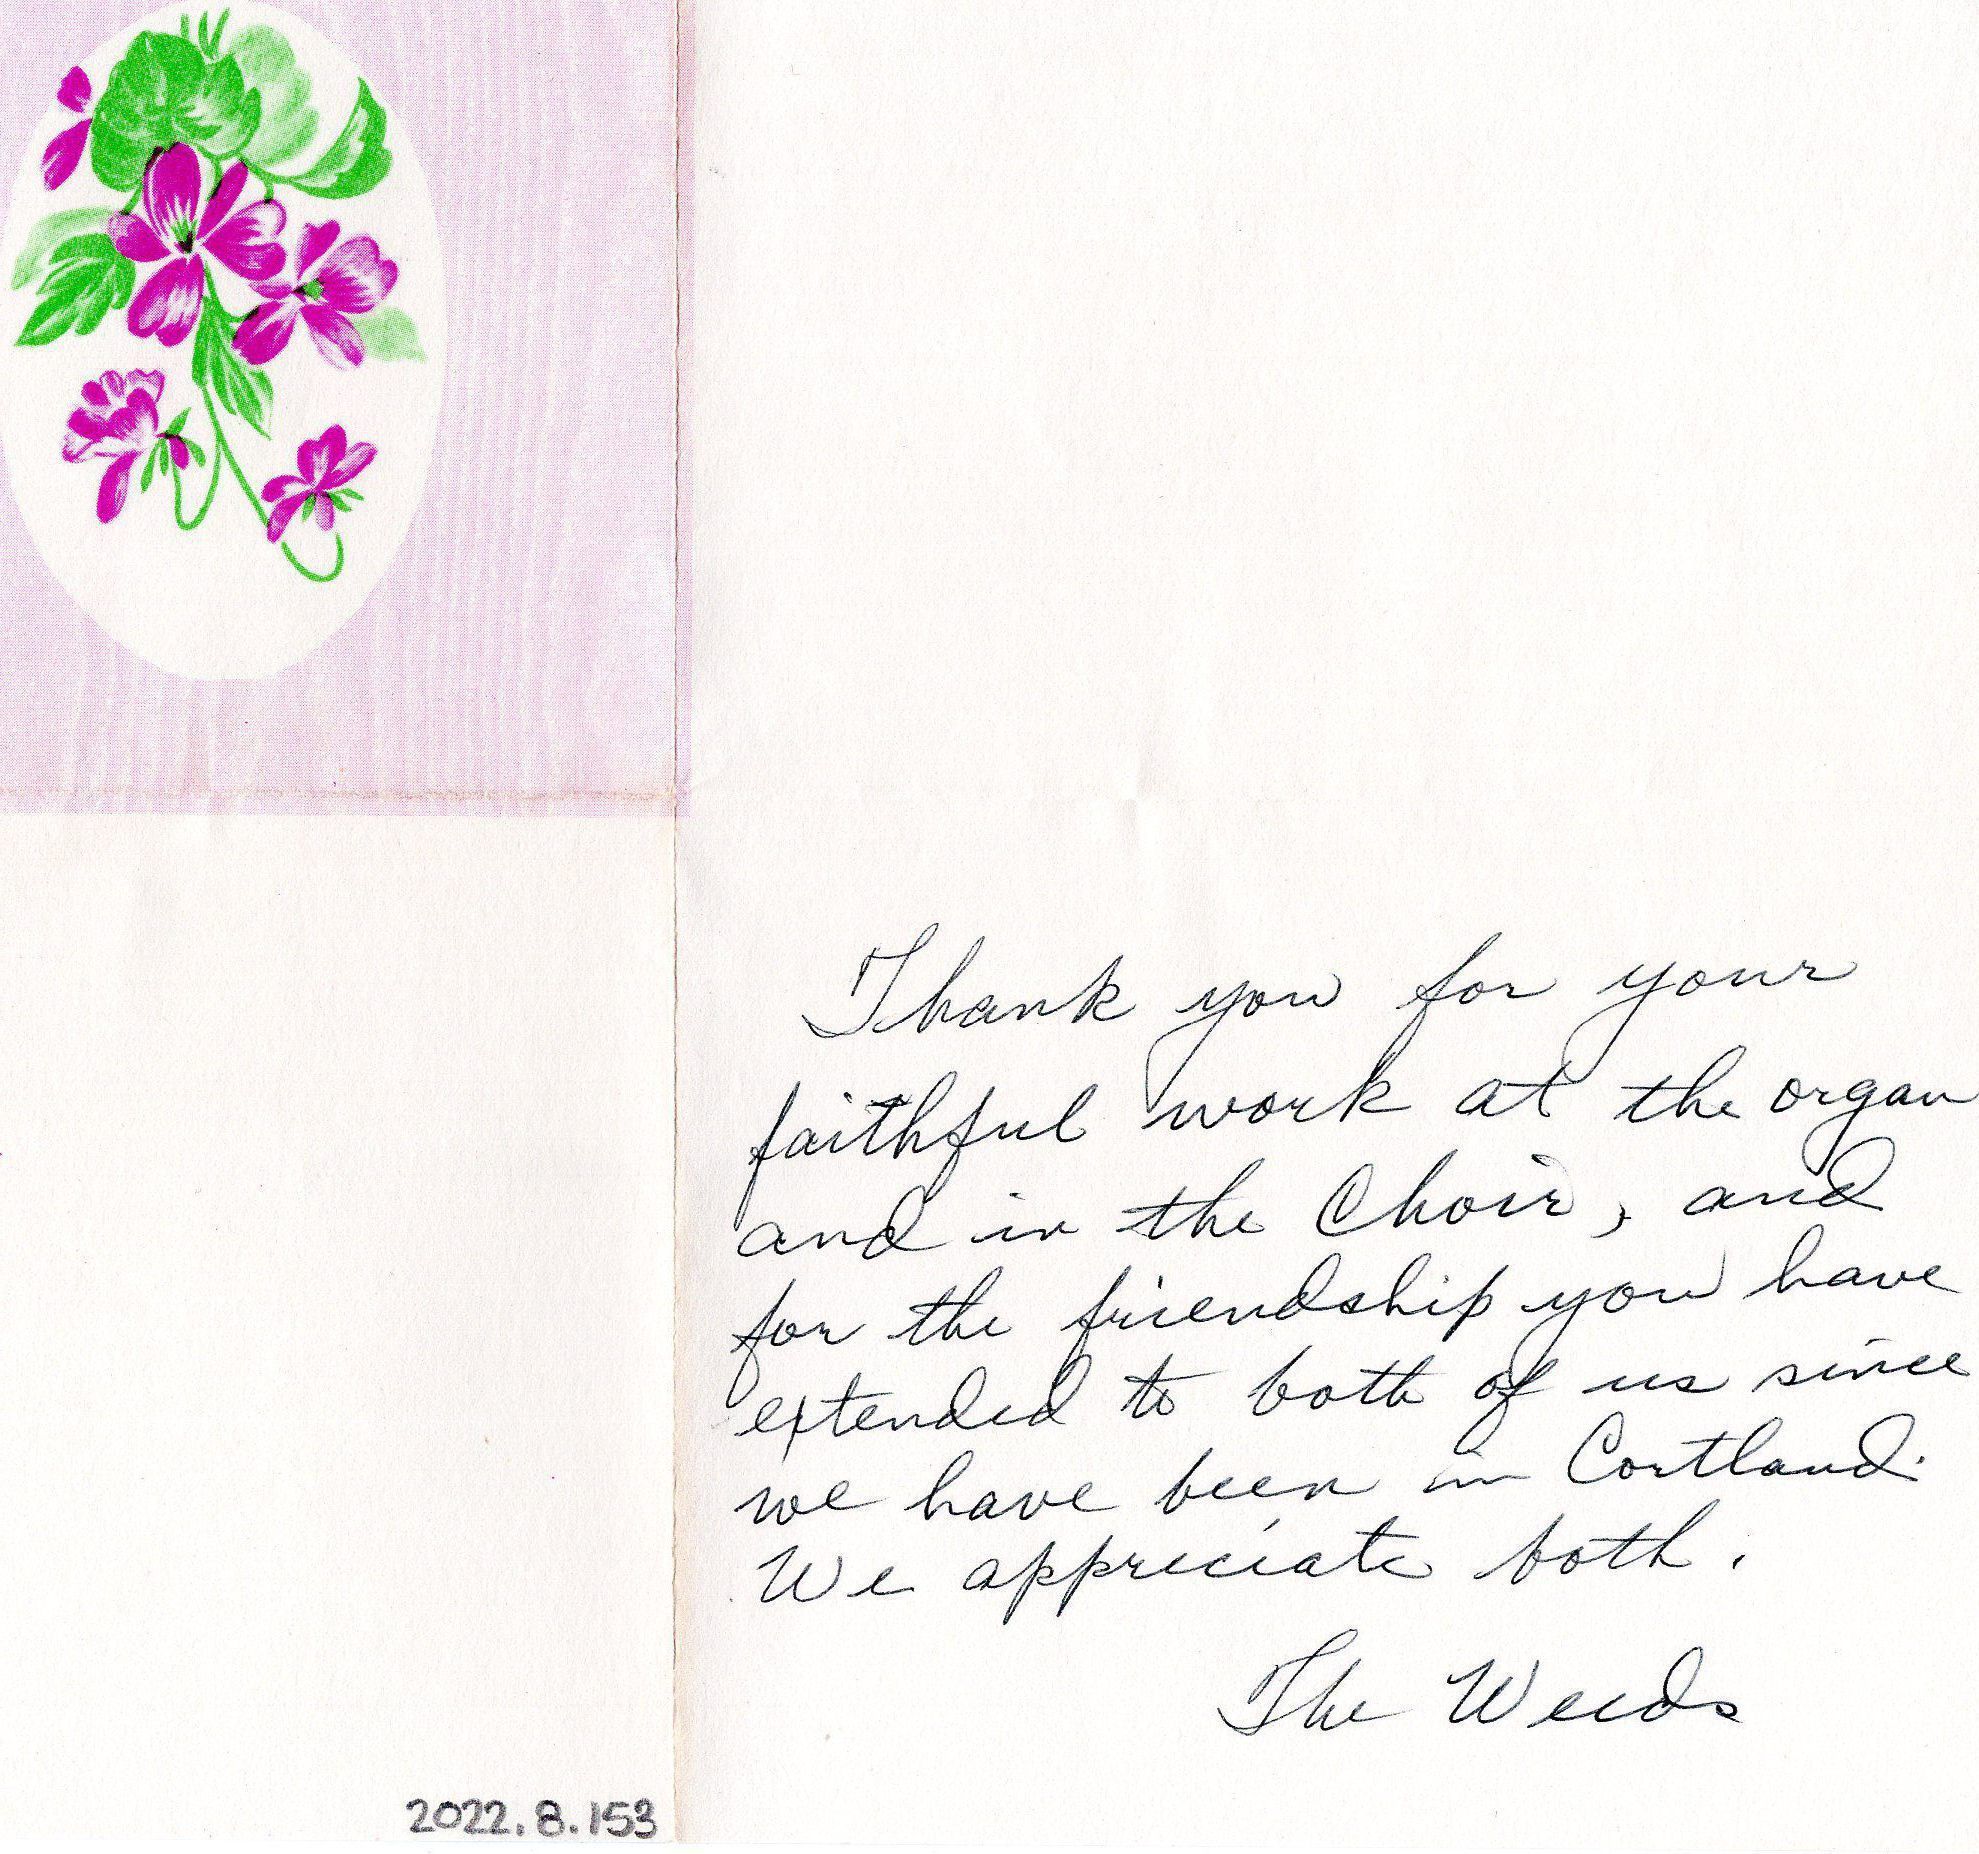 Thank you for your
faithful work at the organ
and in the Choir, and
for the friendship you have
extended to both of us since
we have been in Cortland.
We appreciate both.
The Weeds
2022.8.153